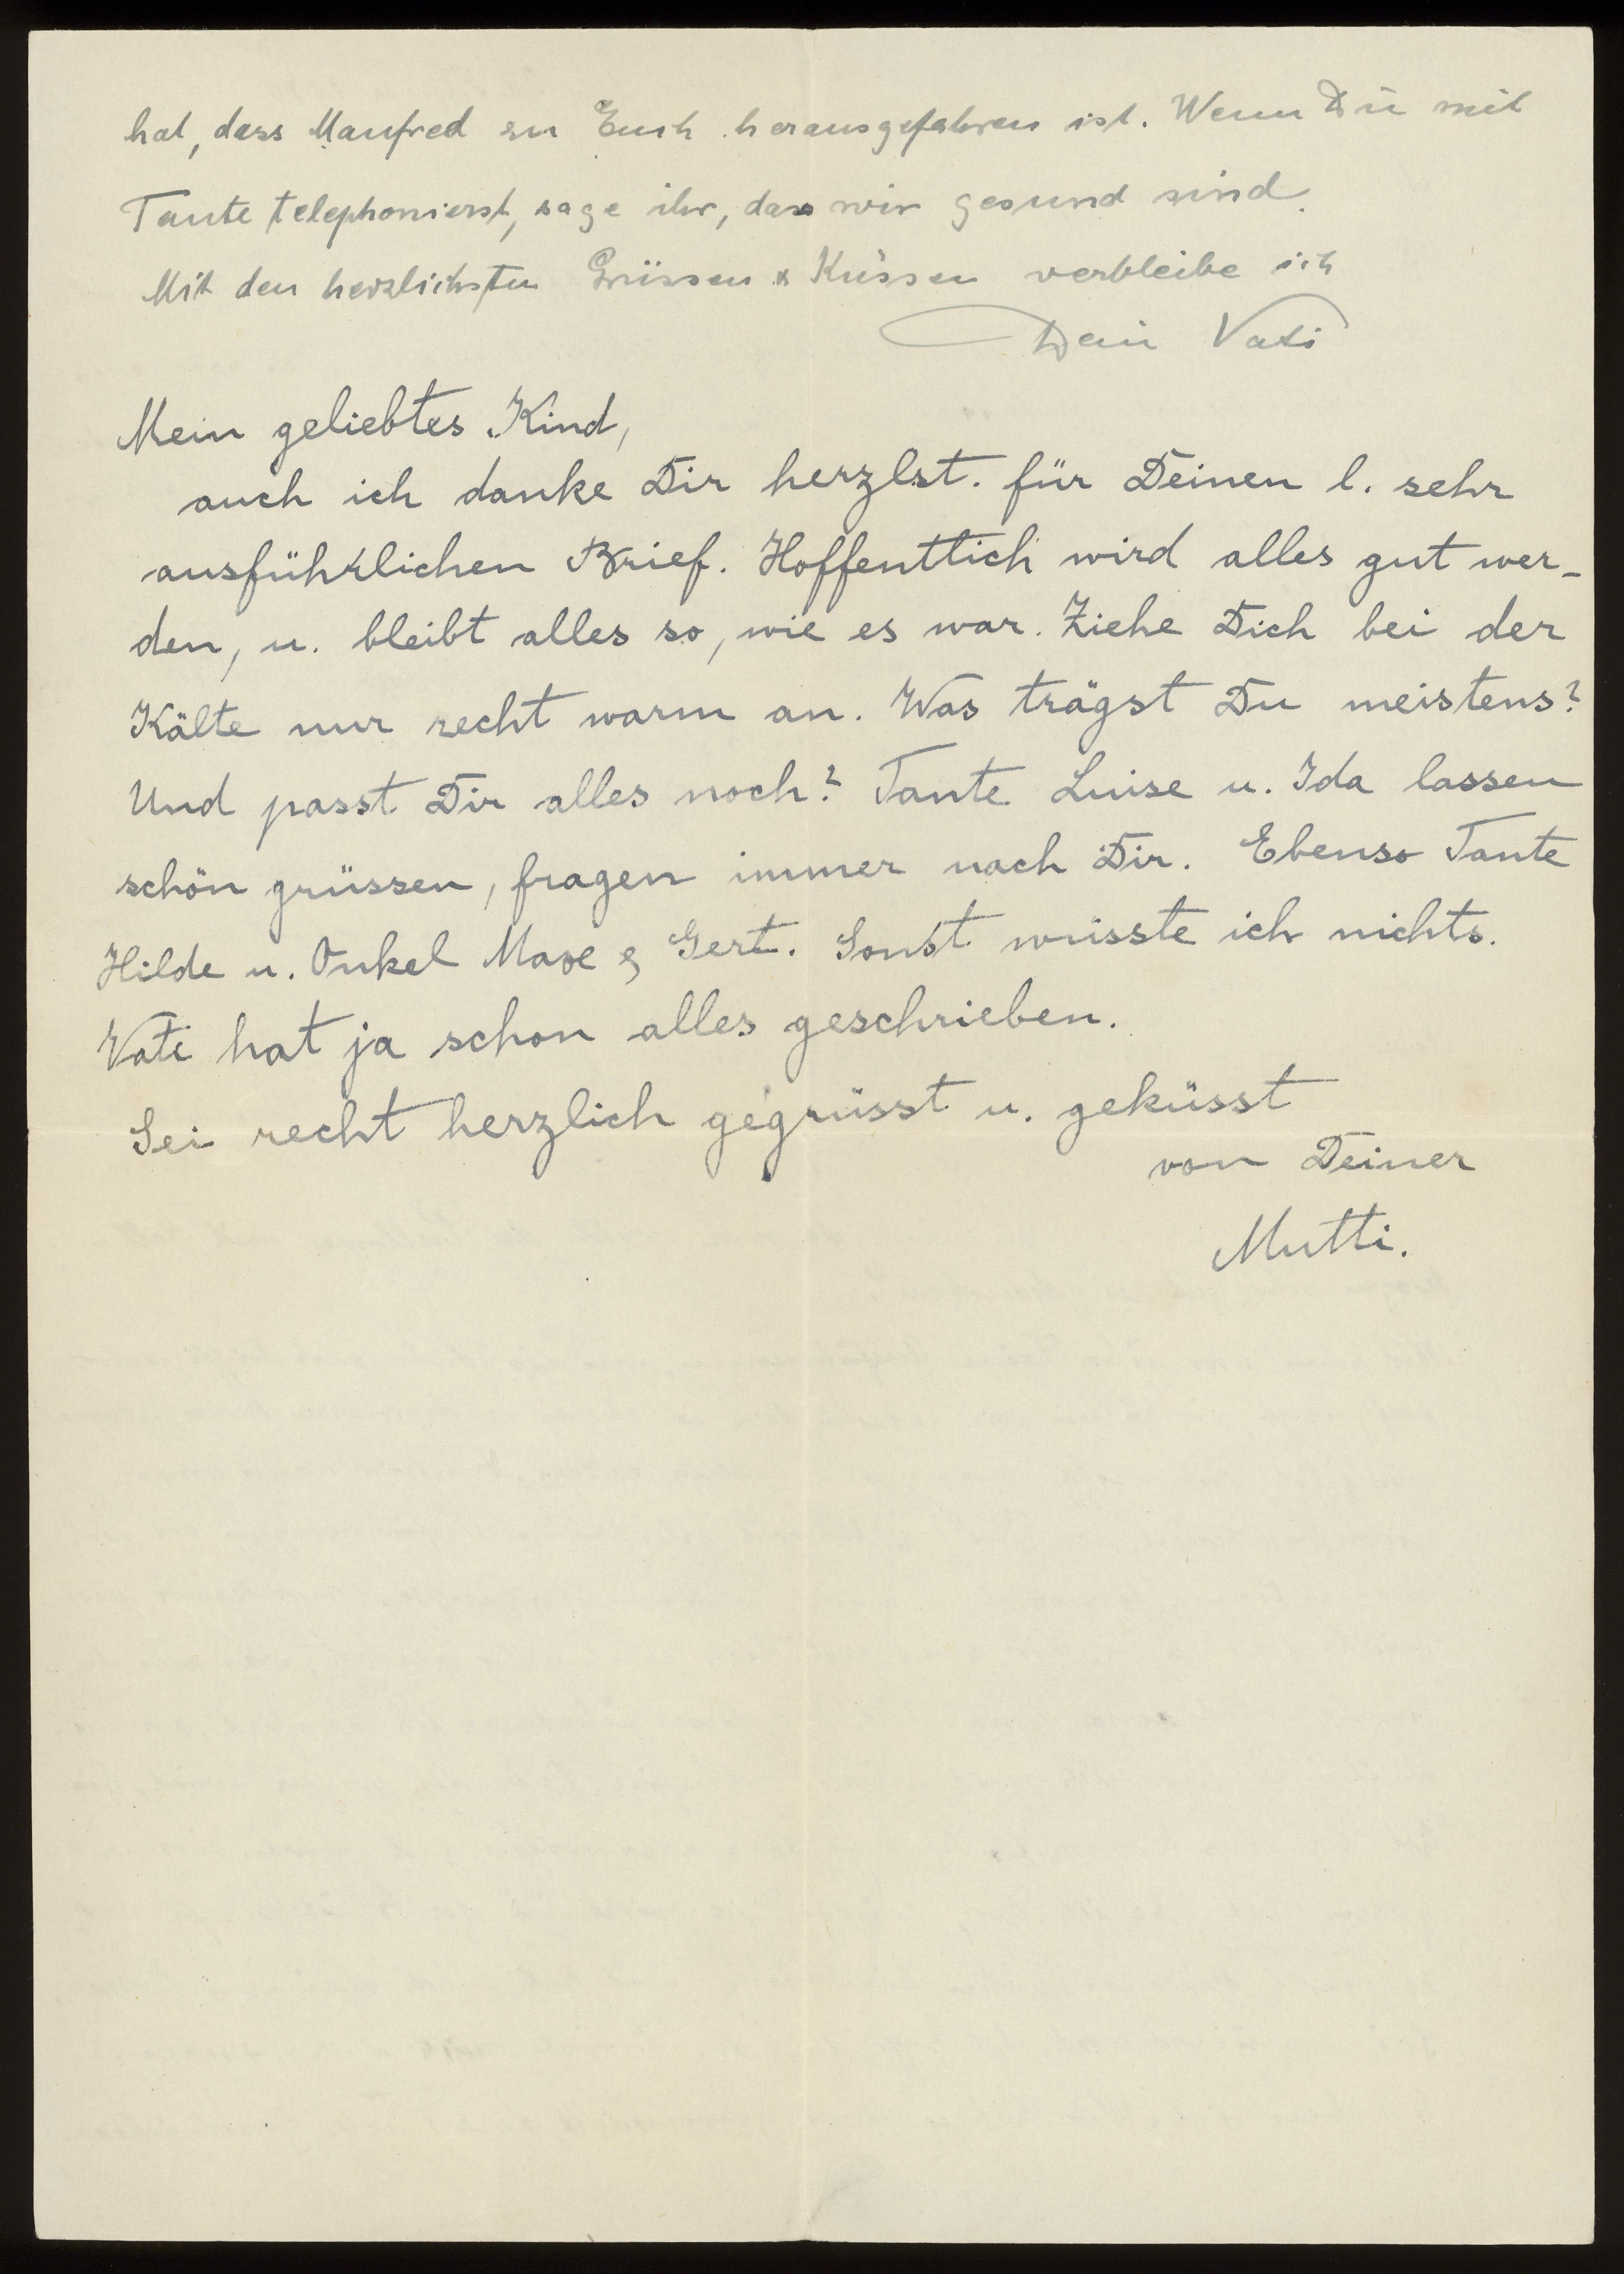 hat, dass Manfred zu Euch herausgefahren ist. Wenn Du mit
Tante telephonierst, sage ihr, dass wir gesund sind.
Mit den herzlichsten Grüssen & Küssen verbleibe ich
Dein Vati
Mein geliebtes Kind,
auch ich danke Dir herzlst. für Deinen l. sehr
ausführlichen Brief. Hoffentlich wird alles gut wer-
den, u. bleibt alles so, wie es war. Ziehe Dich bei der
Kälte nur recht warm an. Was trägst Du meistens?
Und passt Dir alles noch? Tante Luise u. Ida lassen
schön grüssen, fragen immer nach Dir. Ebenso Tante
Hilde u. Onkel Max & Gert. Sonst wüsste ich nichts.
Vati hat ja schon alles geschrieben.
Sei recht herzlich gegrüsst u. geküsst
von Deiner
Mutti.